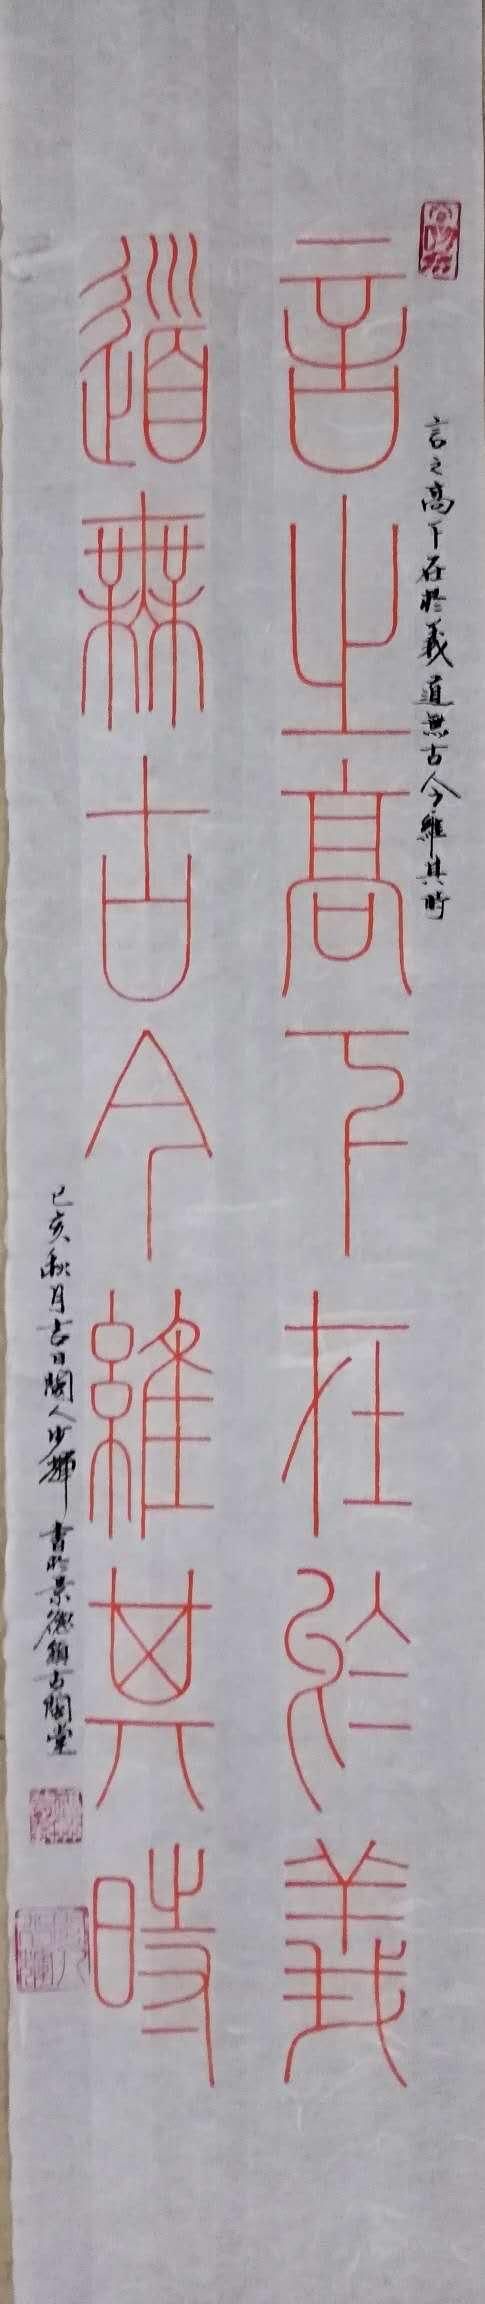 言之高下在於義道無古今維其時
言之高下在於義
道無古今維其時
己亥秋月吉日閩人少輝書於景德鎮古閩堂